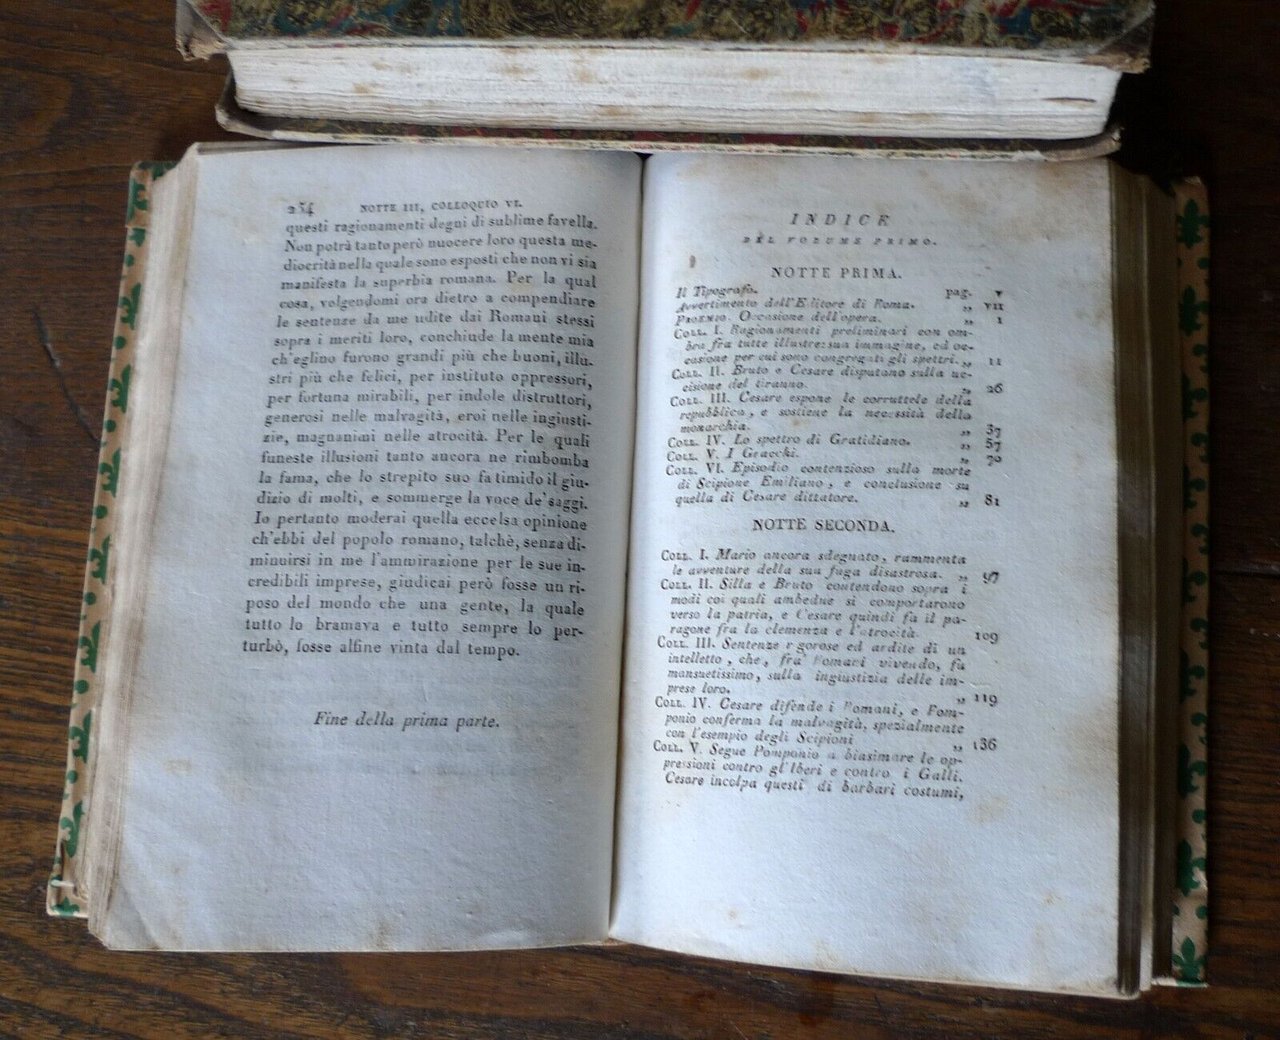 254 NOTTE III, COLLOQUIO VI.
questi ragionamenti degni di sublime favella.
Non potrà tanto però nuocere loro questa me-
diocrità nella quale sono esposti che non vi sia
manifesta la superbia romana. Per la qual
cosa, volgendomi ora dietro a compendiare
le sentenze da me udite dai Romani stessi
sopra i meriti loro, conchiudo la mente mia
ch'eglino furono grandi più che buoni, illu-
stri più che felici, per instituto oppressori,
per fortuna mirabili, per indole distruttori,
generosi nelle malvagità, eroi nelle ingiusti-
zie, magnanimi nelle atrocità. Per le quali
funeste illusioni tanto ancora ne rimbomba
la fama, che lo strepito suo fa timido il giu-
dizio di molti, e sommerge la voce de'saggi.
Io pertanto moderai quella eccelsa opinione
ch'ebbi del popolo romano, talchè, senza di-
minuirsi in me l'ammirazione per le sue in-
credibili imprese, giudicai però fosse un ri-
poso del mondo che una gente, la quale
tutto lo bramava e tutto sempre lo per-
turbò, fosse alfine vinta dal tempo.
Fine della prima parte.
INDICE
DEL VOLUME PRIMO.
NOTTE PRIMA.
Il Tipografo. pag. V
Avvertimento dell'Editore di Roma. „ VII
PROEMIO. Occasione dell'opera. „ 1
COLL. I. Ragionamenti preliminari con om-
bra fra tutte illustre: sua immagine, ed oc-
casione per cui sono congregati gli spettri. „ 11
COLL. II. Bruto e Cesare disputano sulla uc-
cisione del tiranno. „ 26
COLL. III. Cesare espone le corruttele della
repubblica, e sostiene la necessità della
monarchia. „ 37
COLL. IV. Lo spettro di Gratidiano. „ 57
COLL. V. I Gracchi. „ 70
COLL. VI. Episodio contenzioso sulla morte
di Scipione Emiliano, e conclusione su
quella di Cesare dittatore. „ 81
NOTTE SECONDA.
COLL. I. Mario ancora sdegnato, rammenta
le avventure della sua fuga disastrosa. „ 97
COLL. II. Silla e Bruto contendono sopra i
modi coi quali ambedue si comportarono
verso la patria, e Cesare quindi fa il pa-
ragone fra la clemenza e l'atrocità. 109
COLL. III. Sentenze rigorose ed ardite di un
intelletto, che, fra' Romani vivendo, fu
mansuetissimo, sulla ingiustizia delle im-
prese loro. „ 119
COLL. IV. Cesare difende i Romani, e Pom-
ponio conferma la malvagità, spezialmente
con l'esempio degli Scipioni „ 136
COLL. V. Segue Pomponio a biasimare le op-
pressioni contro gl'Iberi e contro i Galli.
Cesare incolpa questi di barbari costumi,